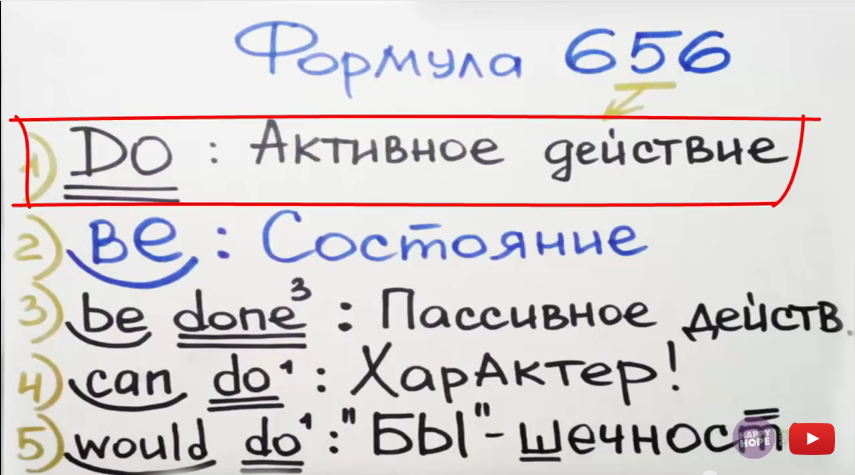 Формула 656
1) DO : Активное действие
2) BE : Состояние
3) be done³ : Пассивное действ.
4) can do¹ : Характер!
5) would do¹ : "БЫ" - шечност
HAPPY HOPE